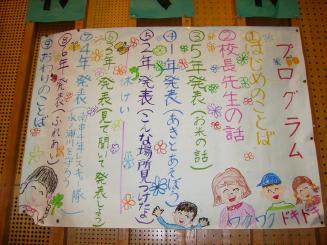 プログラム
①はじめのことば
②校長先生の話
③五年発表(お米の話)
④1年発表(あきとあそぼう)
⑤2年発表(こんな場所見つけたよ)
休けい
⑥3年発表(見て聞いて発表しよう)
⑦4年発表
⑧6年発表(ふれあい)
⑨おわりのことば
ワクワク
ドキドキ